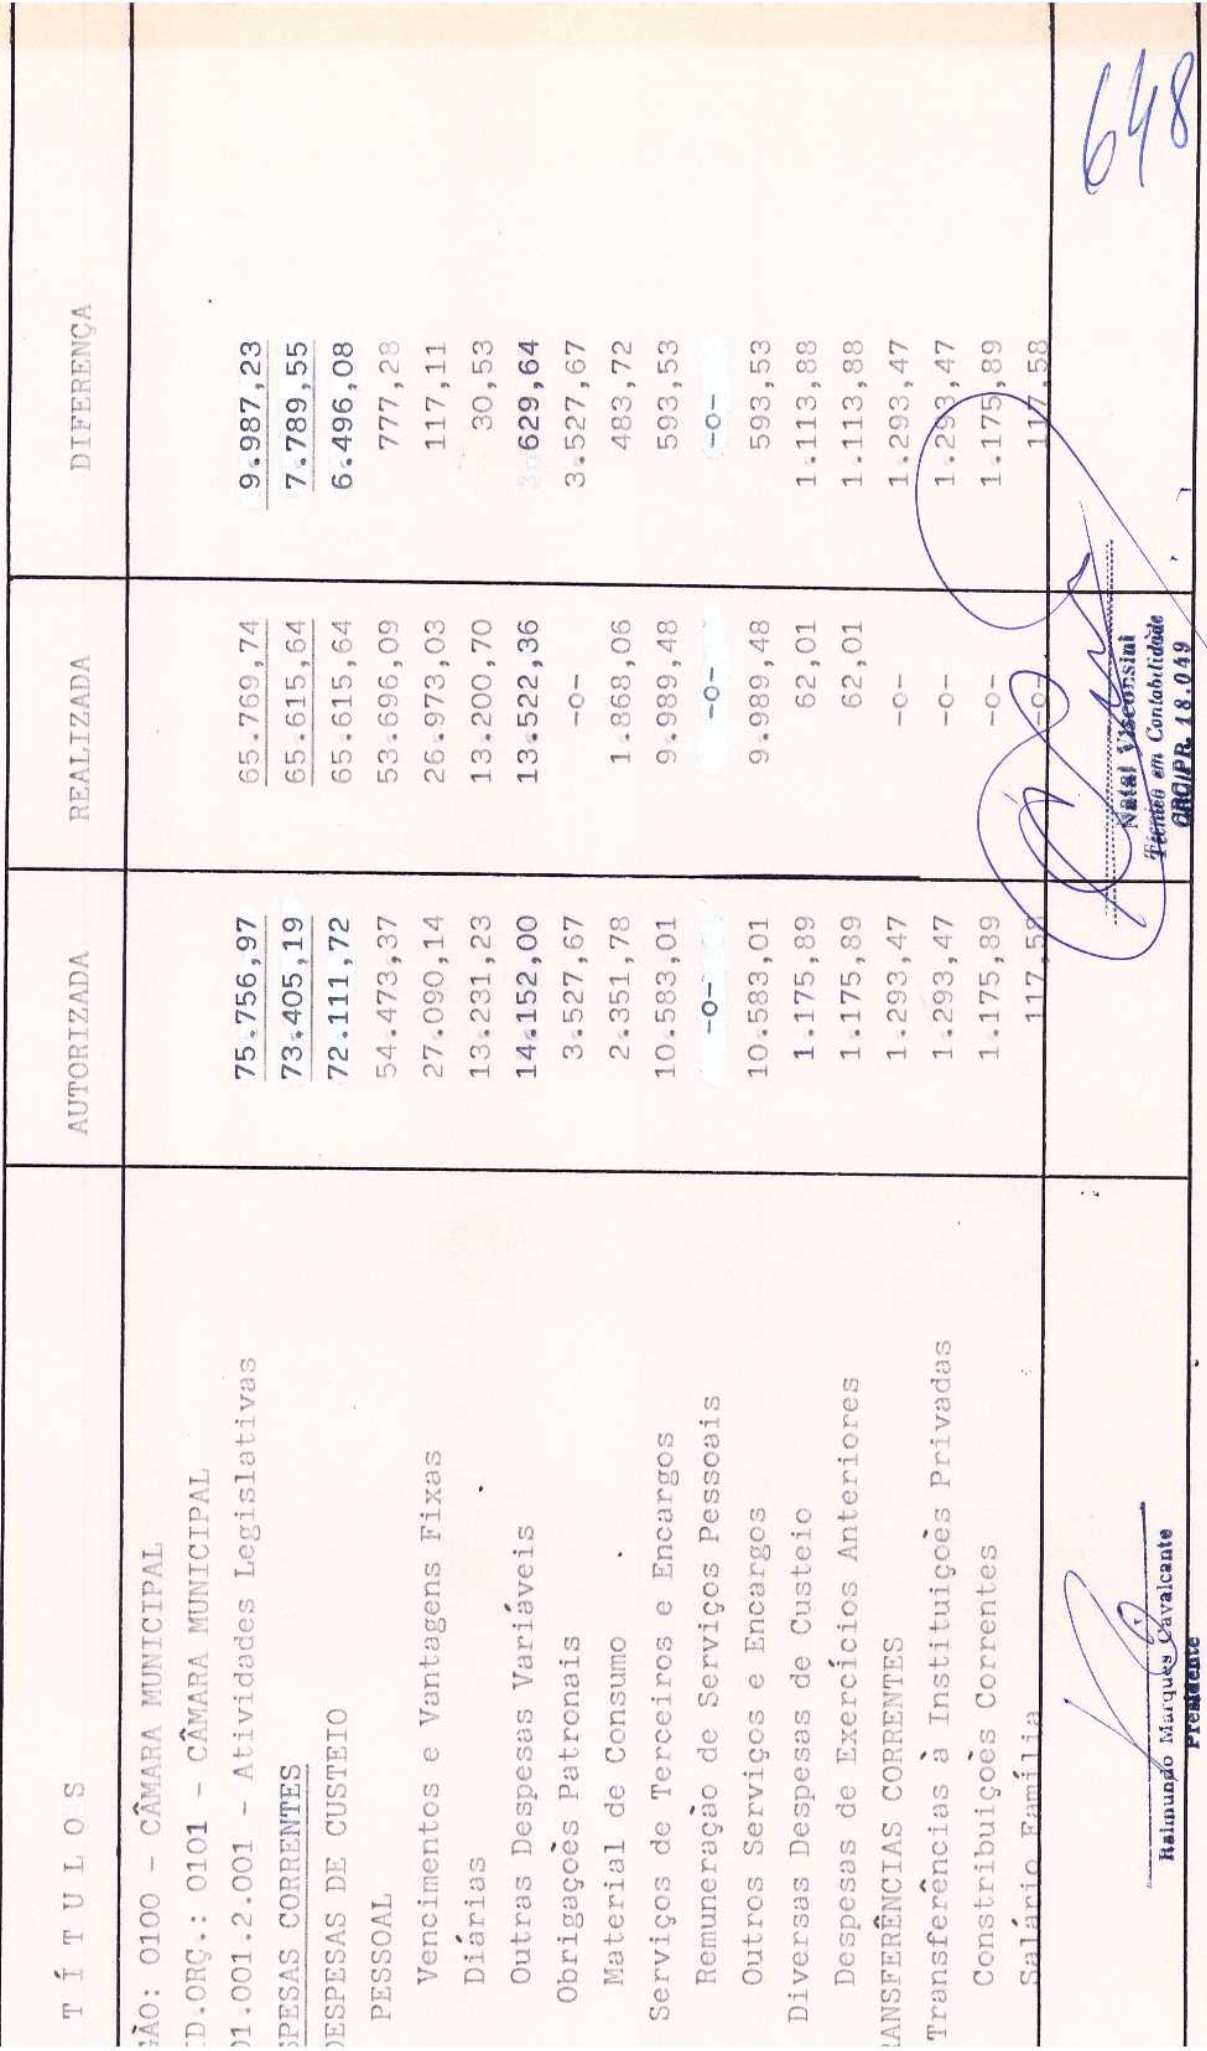 T Í T U L O S AUTORIZADA REALIZADA DIFERENÇA
ÃO: 0100 - CÂMARA MUNICIPAL
ID.ORÇ.: 0101 - CÂMARA MUNICIPAL
01.001.2.001 - Atividades Legislativas 75.756,97 65.769,74 9.987,23
SPESAS CORRENTES 73.405,19 65.615,64 7.789,55
DESPESAS DE CUSTEIO 72.111,72 65.615,64 6.496,08
PESSOAL 54.473,37 53.696,09 777,28
Vencimentos e Vantagens Fixas 27.090,14 26.973,03 117,11
Diárias 13.231,23 13.200,70 30,53
Outras Despesas Variáveis 14.152,00 13.522,36 629,64
Obrigaçoès Patronais 3.527,67 -o- 3.527,67
Material de Consumo 2.351,78 1.868,06 483,72
Serviços de Terceiros e Encargos 10.583,01 9.989,48 593,53
Remuneração de Serviços Pessoais -o- -o- -o-
Outros Serviços e Encargos 10.583,01 9.989,48 593,53
Diversas Despesas de Custeio 1.175,89 62,01 1.113,88
Despesas de Exercícios Anteriores 1.175,89 62,01 1.113,88
RANSFERÊNCIAS CORRENTES 1.293,47 -o- 1.293,47
Transferências à Instituiçoès Privadas 1.293,47 -o- 1.293,47
Constribuiçoès Correntes 1.175,89 -o- 1.175,89
Salário Família 117,58 -o- 117,58
Raimundo Marques Cavalcante
Presidente
Natal Visconsini
Técnico em Contabilidade
CRC/PR. 18.049
648